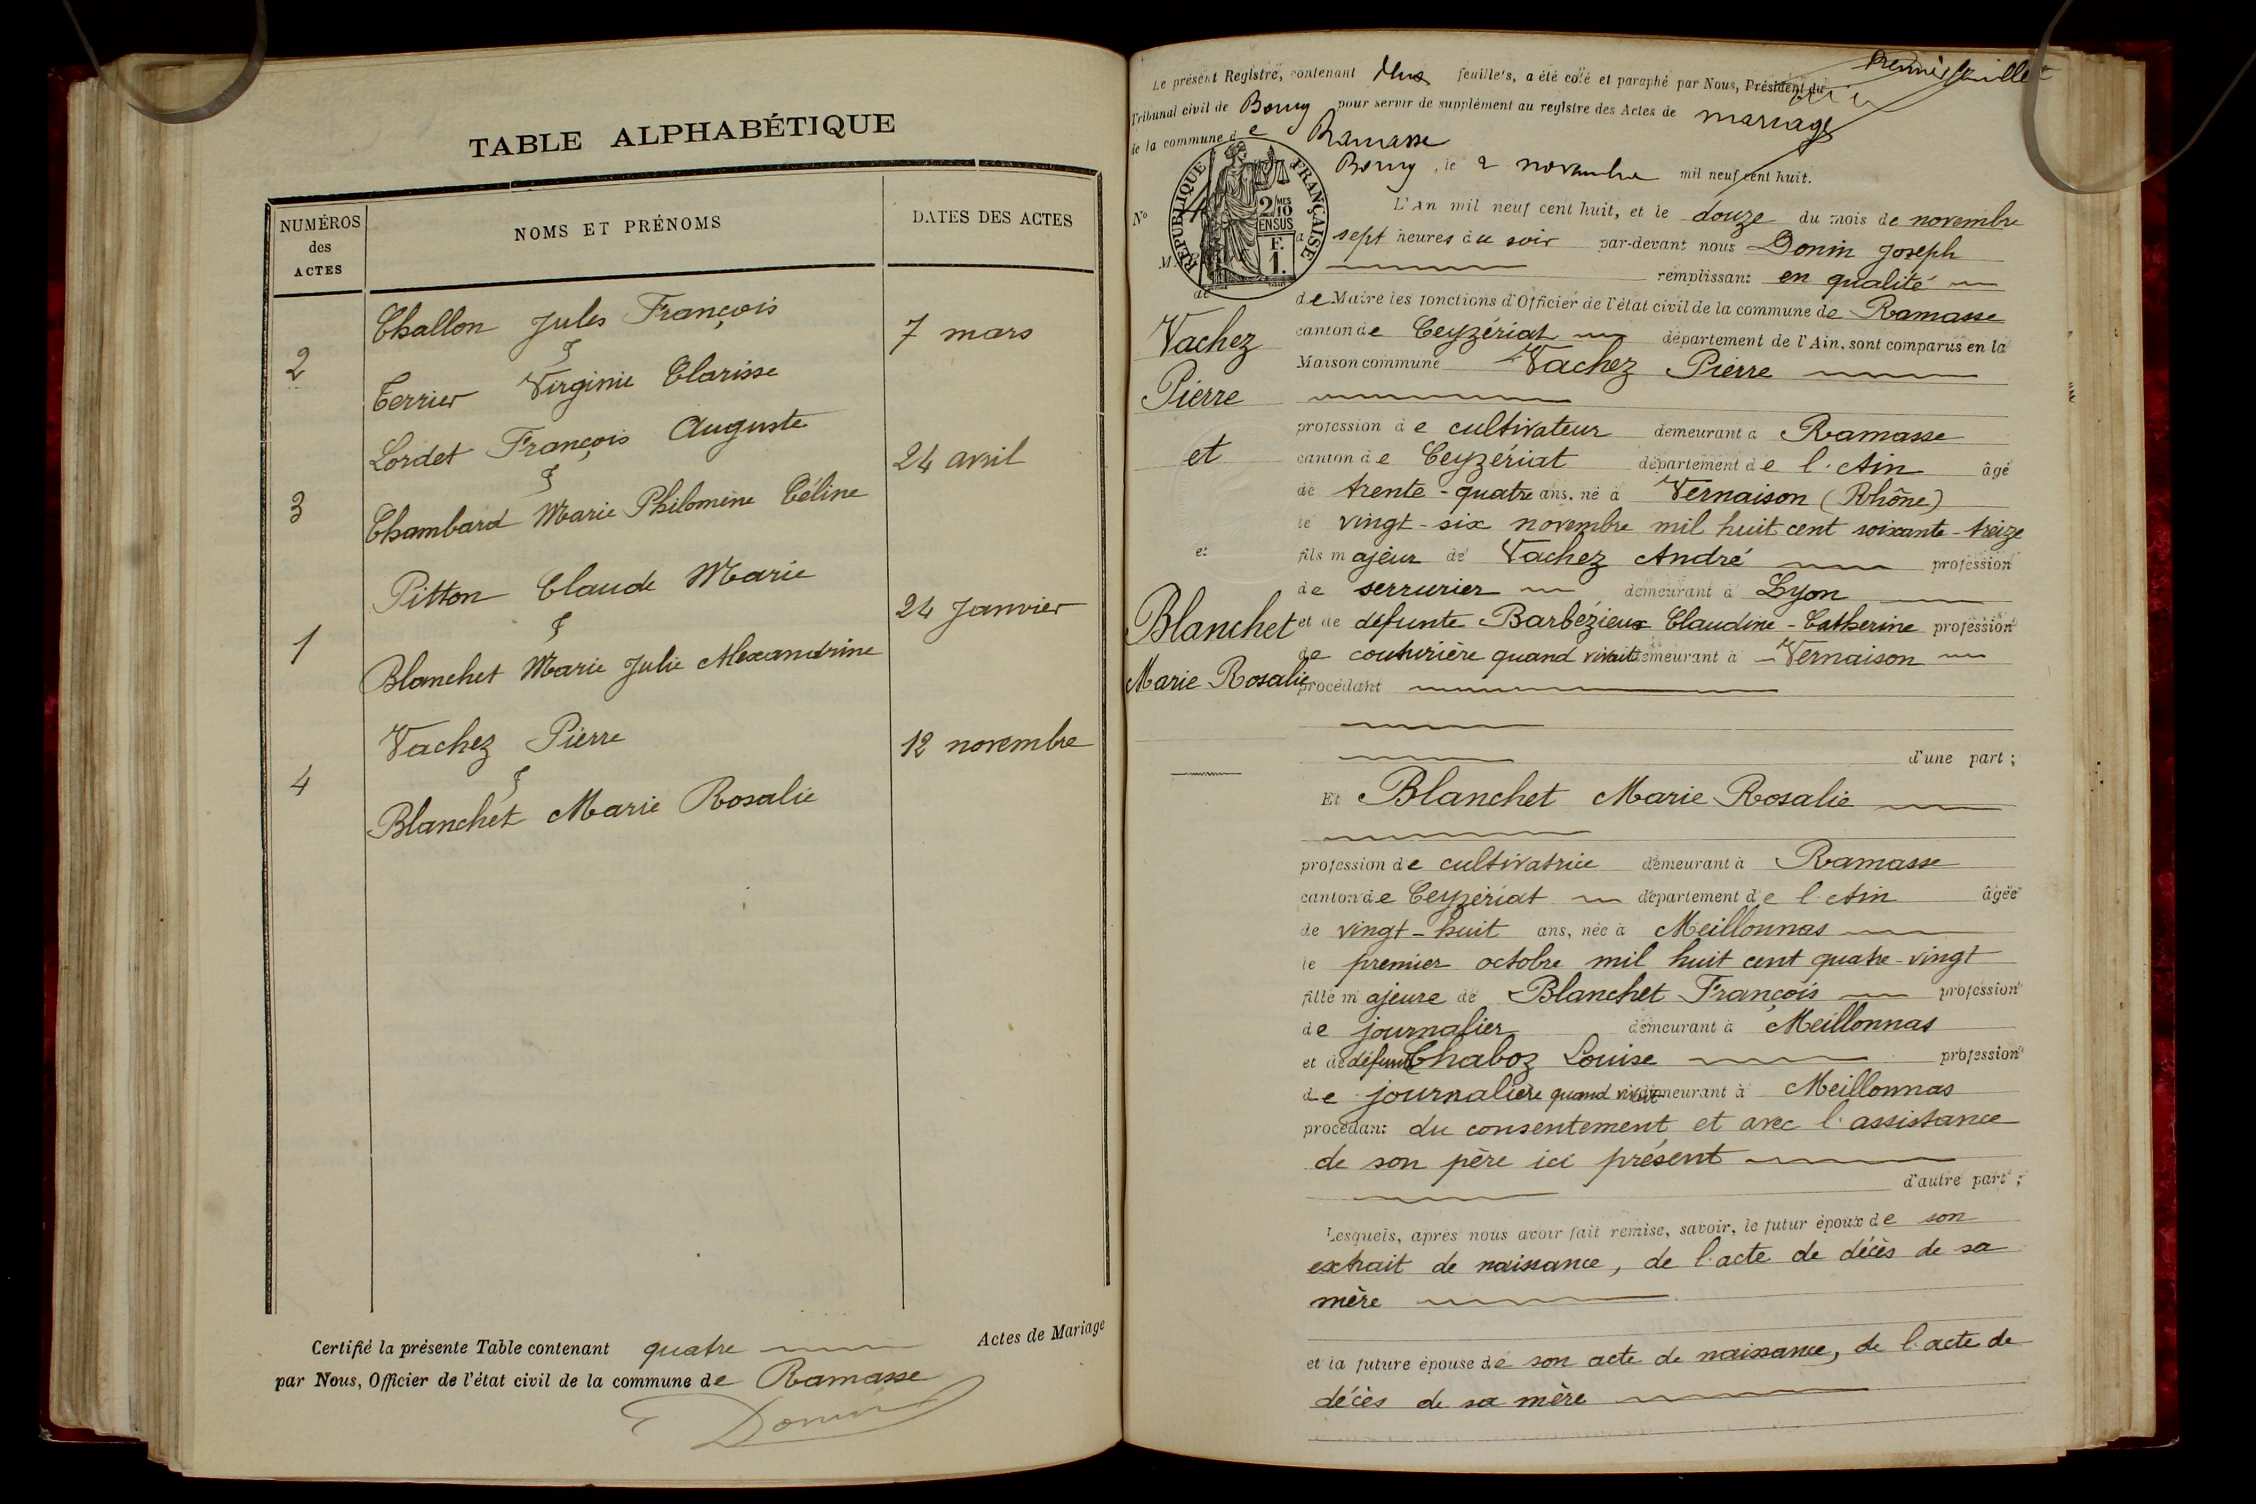 TABLE ALPHABÉTIQUE
NUMÉROS
des
ACTES
NOMS ET PRÉNOMS
DATES DES ACTES
Challon Jules François
7 mars
2
&
Terrier Virginie Clarisse
Lordet François Auguste
24 avril
&
3
Chambard Marie Philomène Céline
Pitton Claude Marie
24 Janvier
&
1
Blanchet Marie Julie Alexandrine
Vachez Pierre
12 novembre
&
4
Blanchet Marie Rosalie
Certifié la présente Table contenant quatre Actes de Mariage
par Nous, Officier de l'état civil de la commune de Ramasse
Donin
Premier feuillet
Le présent Registre, contenant deux feuillets, a été coté et paraphé par Nous, Président du
Tribunal civil de Bourg pour servir de supplément au registre des Actes de mariage
de la commune de Ramasse
Bourg, le 2 novembre mil neuf cent huit.
RÉPUBLIQUE FRANÇAISE
2/10 MES
EN SUS
F.
1.
No 4
L'An mil neuf cent huit, et le douze du mois de novembre
à sept heures du soir par-devant nous Donin Joseph
M.
remplissant en qualité
de
de Maire les fonctions d'Officier de l'état civil de la commune de Ramasse
Vachez
canton de Ceyzériat département de l'Ain, sont comparus en la
Maison commune Vachez Pierre
Pierre
profession de cultivateur demeurant à Ramasse
et
canton de Ceyzériat département de l'Ain âgé
de trente-quatre ans, né à Vernaison (Rhône)
le vingt-six novembre mil huit cent soixante-treize
et
fils majeur de Vachez André profession
de serrurier demeurant à Lyon
Blanchet
et de défunte Barbezieux Claudine-Catherine profession
de couturière quand vivait demeurant à Vernaison
Marie Rosalie
procédant
d'une part;
Et Blanchet Marie Rosalie
profession de cultivatrice demeurant à Ramasse
canton de Ceyzériat département de l'Ain âgée
de vingt-huit ans, née à Meillonnas
le premier octobre mil huit cent quatre-vingt
fille majeure de Blanchet François profession
de journalier demeurant à Meillonnas
et de défunte Chaboz Louise profession
de journalière quand vivait demeurant à Meillonnas
procédant du consentement et avec l'assistance
de son père ici présent
d'autre part;
Lesquels, après nous avoir fait remise, savoir, le futur époux de son
extrait de naissance, de l'acte de décès de sa
mère
et la future épouse de son acte de naissance, de l'acte de
décès de sa mère